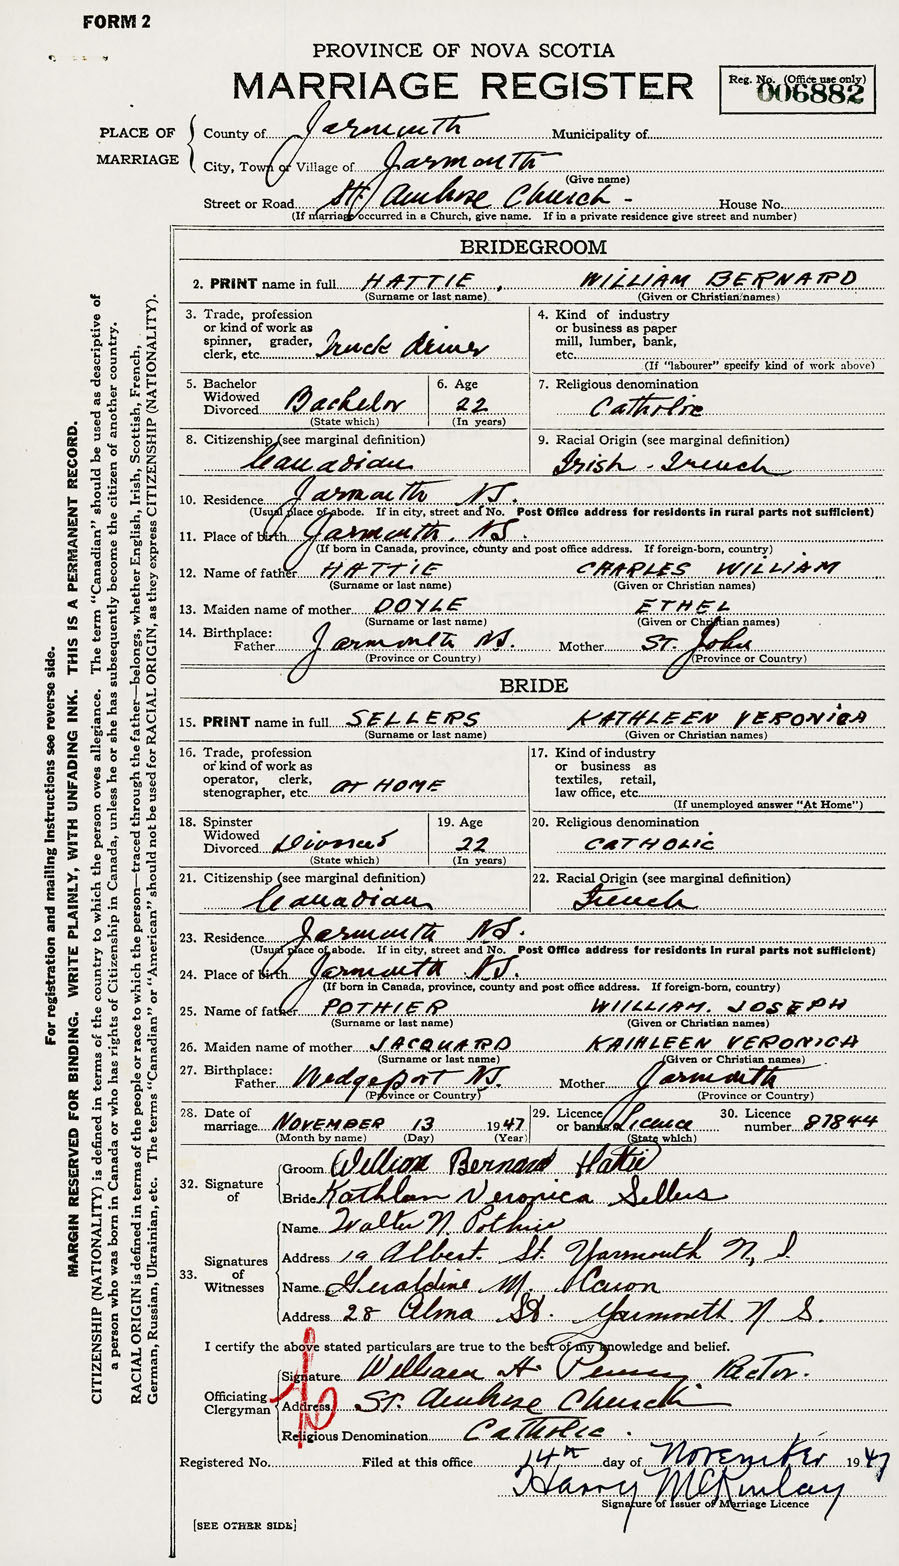 FORM 2
PROVINCE OF NOVA SCOTIA
MARRIAGE REGISTER
Reg. No. (Office use only)
006882
PLACE OF MARRIAGE
County of Yarmouth Municipality of
City, Town or Village of Yarmouth
(Give name)
Street or Road St. Ambrose Church - House No.
(If marriage occurred in a Church, give name. If in a private residence give street and number)
BRIDEGROOM
2. PRINT name in full HATTIE, WILLIAM BERNARD
(Surname or last name) (Given or Christian names)
3. Trade, profession or kind of work as spinner, grader, clerk, etc. Truck driver
4. Kind of industry or business as paper mill, lumber, bank, etc.
(If "labourer" specify kind of work above)
5. Bachelor Widowed Divorced Bachelor
(State which)
6. Age 22
(In years)
7. Religious denomination
Catholic
8. Citizenship (see marginal definition)
Canadian
9. Racial Origin (see marginal definition)
Irish - French
10. Residence Yarmouth N.S.
(Usual place of abode. If in city, street and No. Post Office address for residents in rural parts not sufficient)
11. Place of birth Yarmouth. N.S.
(If born in Canada, province, county and post office address. If foreign-born, country)
12. Name of father HATTIE CHARLES WILLIAM
(Surname or last name) (Given or Christian names)
13. Maiden name of mother DOYLE ETHEL
(Surname or last name) (Given or Christian names)
14. Birthplace: Father Yarmouth N.S. Mother ST. John
(Province or Country) (Province or Country)
BRIDE
15. PRINT name in full SELLERS KATHLEEN VERONICA
(Surname or last name) (Given or Christian names)
16. Trade, profession or kind of work as operator, clerk, stenographer, etc. AT HOME
17. Kind of industry or business as textiles, retail, law office, etc.
(If unemployed answer "At Home")
18. Spinster Widowed Divorced Divorced
(State which)
19. Age 22
(In years)
20. Religious denomination
CATHOLIC
21. Citizenship (see marginal definition)
Canadian
22. Racial Origin (see marginal definition)
French
23. Residence Yarmouth N.S.
(Usual place of abode. If in city, street and No. Post Office address for residents in rural parts not sufficient)
24. Place of birth Yarmouth N.S.
(If born in Canada, province, county and post office address. If foreign-born, country)
25. Name of father POTHIER WIILLIAM. JOSEPH
(Surname or last name) (Given or Christian names)
26. Maiden name of mother JACQUARD KATHLEEN VERONICA
(Surname or last name) (Given or Christian names)
27. Birthplace: Father Wedgeport N.S. Mother Yarmouth
(Province or Country) (Province or Country)
28. Date of marriage NOVEMBER 13 1947
(Month by name) (Day) (Year)
29. Licence or banns Licence
(State which)
30. Licence number 87844
32. Signature of
Groom William Bernard Hattie
Bride Kathleen Veronica Sellers
33. Signatures of Witnesses
Name Walter N Pothier
Address 19 Albert. St. Yarmouth N, S.
Name Geraldine M. Caron
Address 28 Alma St. Yarmouth N S.
I certify the above stated particulars are true to the best of my knowledge and belief.
Officiating Clergyman
Signature William H Penny Rector.
Address ST. Ambrose Church
Religious Denomination Catholic.
Registered No. Filed at this office 14th day of November 1947
Harry McKinlay
Signature of Issuer of Marriage Licence
[SEE OTHER SIDE]
For registration and mailing instructions see reverse side.
MARGIN RESERVED FOR BINDING. WRITE PLAINLY, WITH UNFADING INK. THIS IS A PERMANENT RECORD.
CITIZENSHIP (NATIONALITY) is defined in terms of the country to which the person owes allegiance. The term "Canadian" should be used as descriptive of
a person who was born in Canada or who has rights of Citizenship in Canada, unless he or she has subsequently become the citizen of another country.
RACIAL ORIGIN is defined in terms of the people or race to which the person—traced through the father—belongs, whether English, Irish, Scottish, French,
German, Russian, Ukrainian, etc. The terms "Canadian" or "American" should not be used for RACIAL ORIGIN, as they express CITIZENSHIP (NATIONALITY).